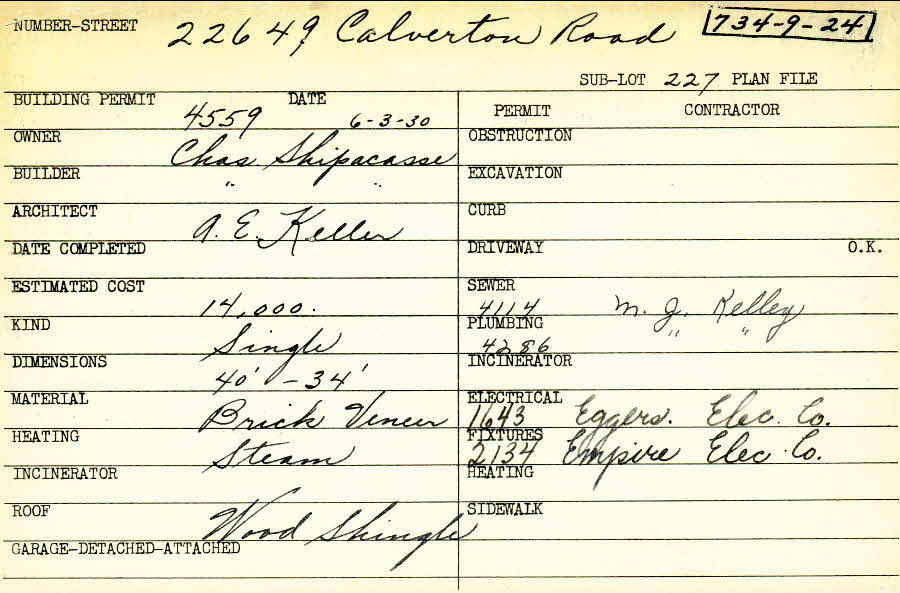 NUMBER-STREET 22649 Calverton Road 734-9-24
SUB-LOT 227 PLAN FILE
BUILDING PERMIT 4559 DATE 6-3-30
OWNER Chas. Shipacasse
BUILDER " "
ARCHITECT A. E. Keller
DATE COMPLETED
ESTIMATED COST 14,000.
KIND Single
DIMENSIONS 40' - 34'
MATERIAL Brick Veneer
HEATING Steam
INCINERATOR
ROOF Wood Shingle
GARAGE-DETACHED-ATTACHED
PERMIT CONTRACTOR
OBSTRUCTION
EXCAVATION
CURB
DRIVEWAY O.K.
SEWER
4114 M. J. Kelley
PLUMBING " "
4286
INCINERATOR
ELECTRICAL
1643 Eggers. Elec. Co.
FIXTURES
2134 Empire Elec. Co.
HEATING
SIDEWALK